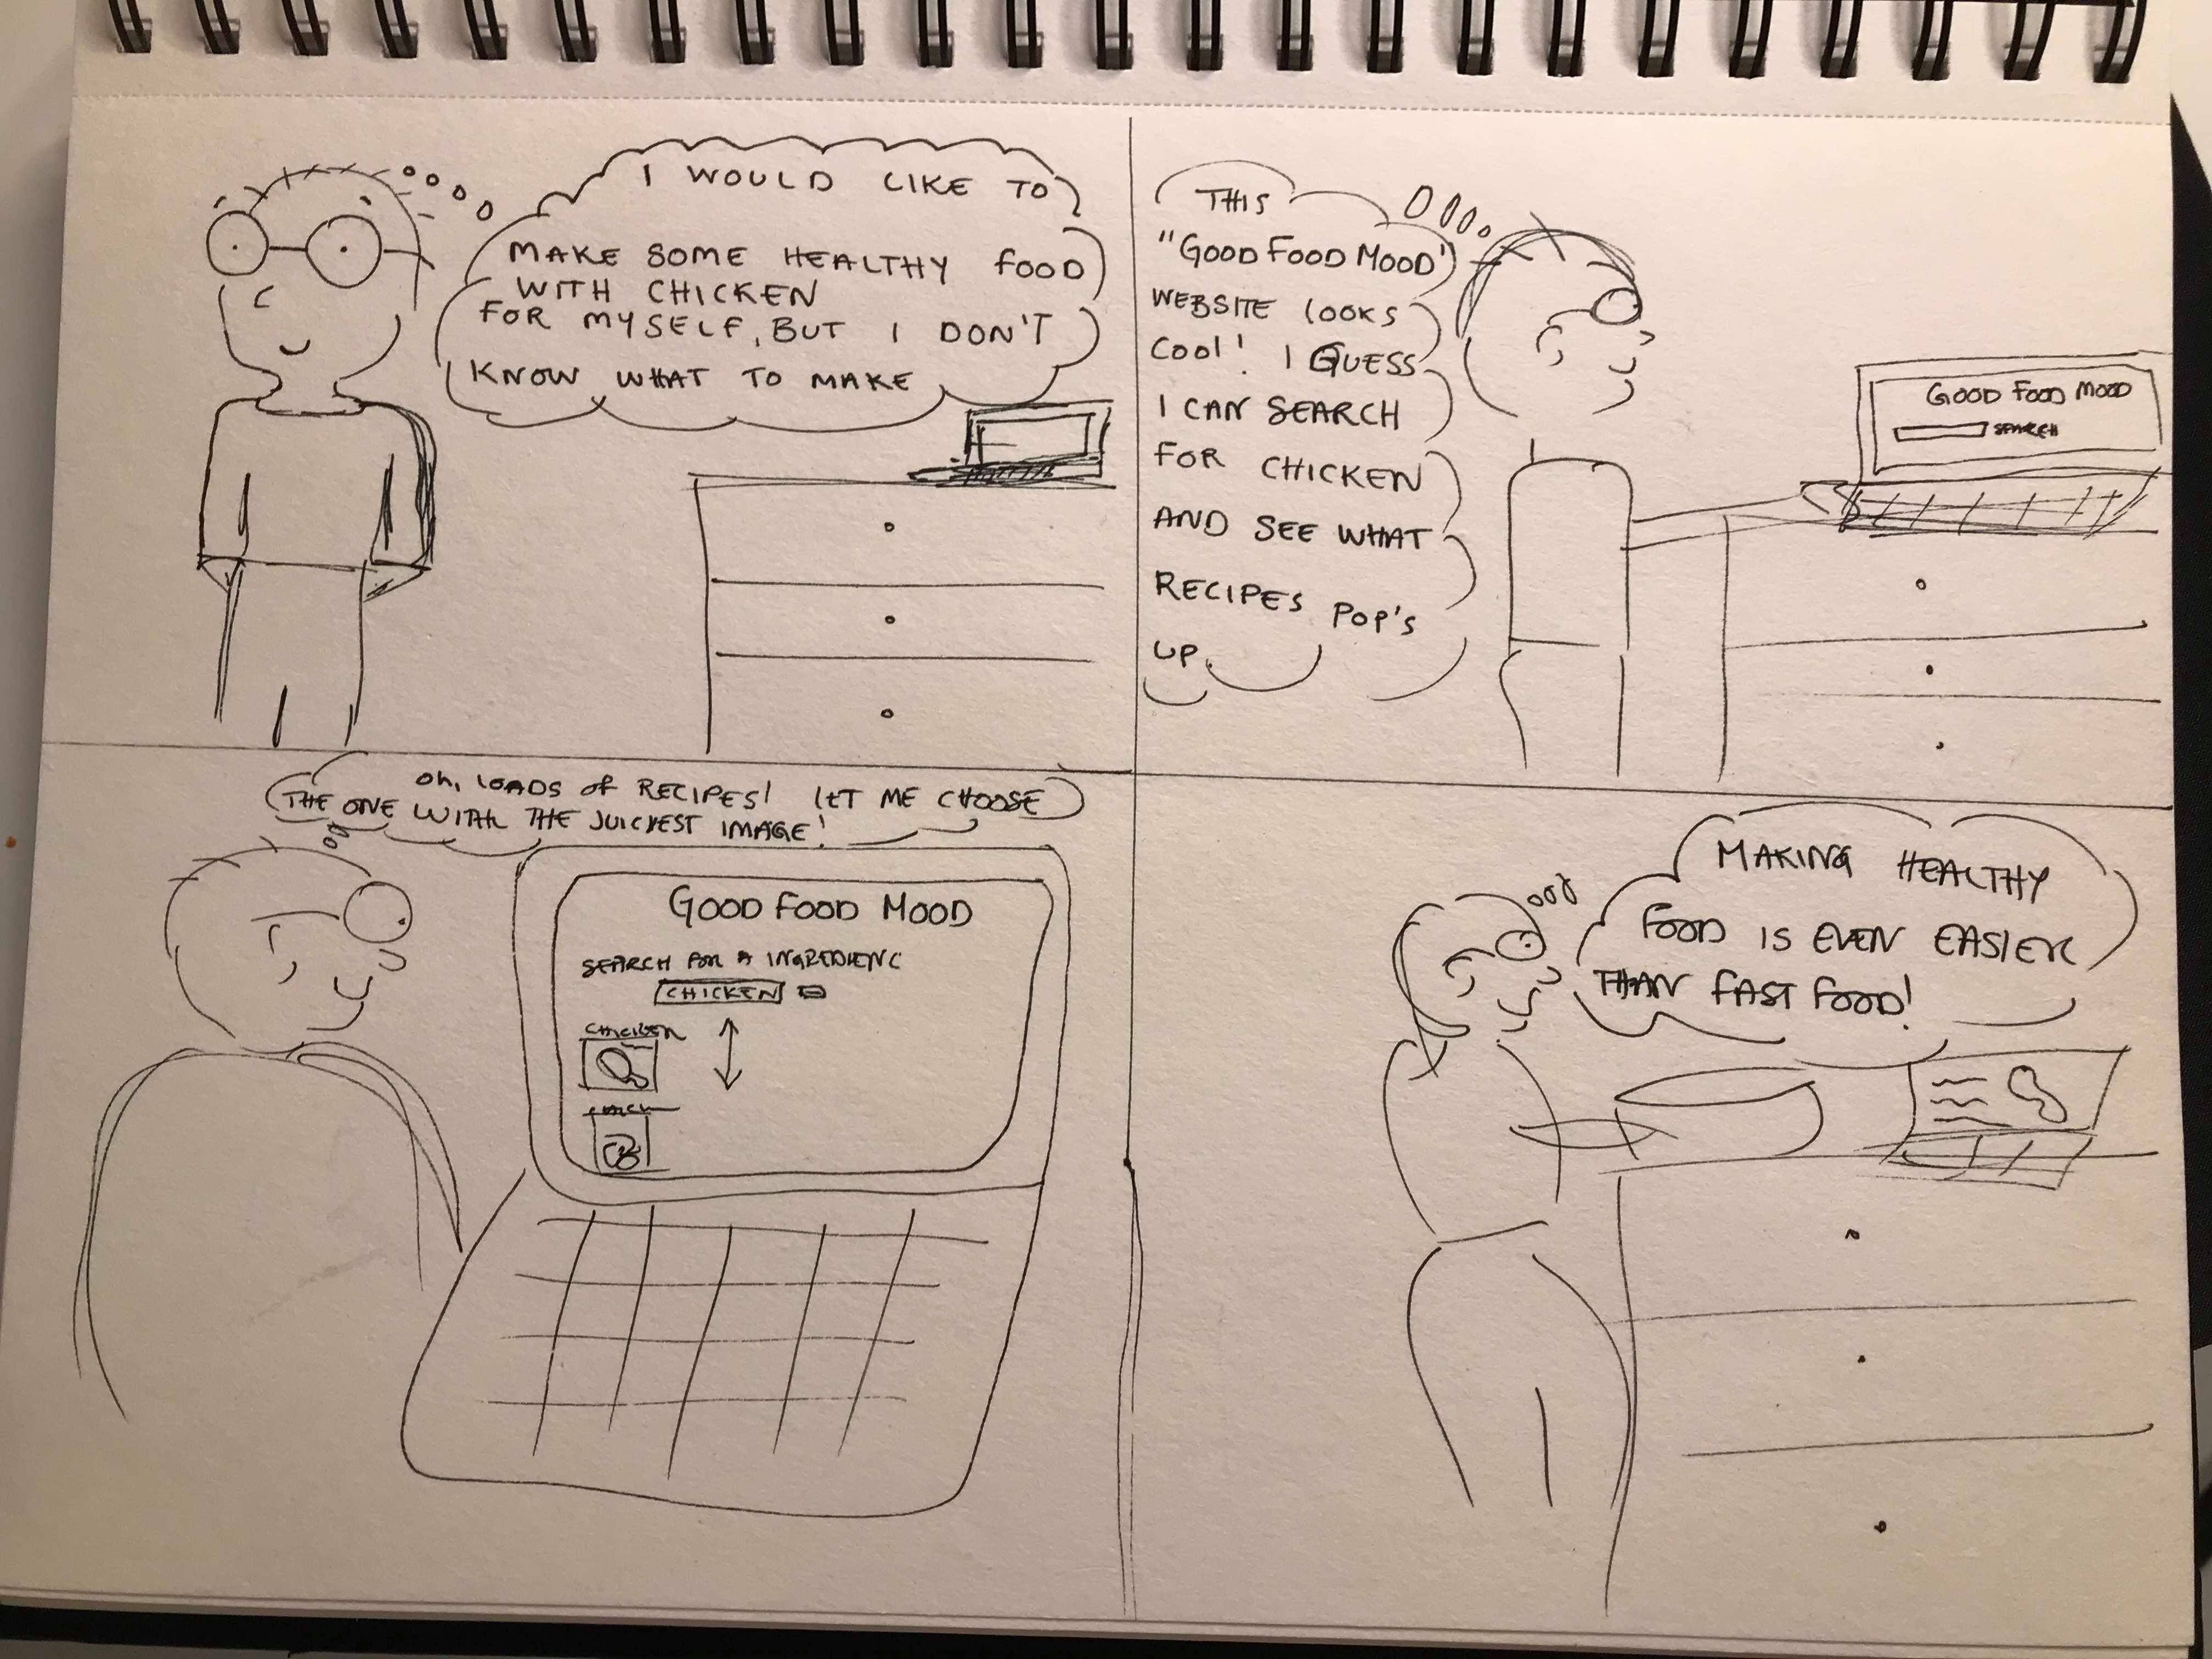 I WOULD LIKE TO
MAKE SOME HEALTHY FOOD
WITH CHICKEN
FOR MYSELF, BUT I DON'T
KNOW WHAT TO MAKE
THIS
"GOOD FOOD MOOD"
WEBSITE LOOKS
COOL! I GUESS
I CAN SEARCH
FOR CHICKEN
AND SEE WHAT
RECIPES POP'S
UP
GOOD FOOD MOOD
SEARCH
Oh, LOADS OF RECIPES! LET ME CHOOSE
THE ONE WITH THE JUICYEST IMAGE!
GOOD FOOD MOOD
SEARCH FOR A
CHICKEN
MAKING HEALTHY
FOOD IS EVEN EASIER
THAN FAST FOOD!